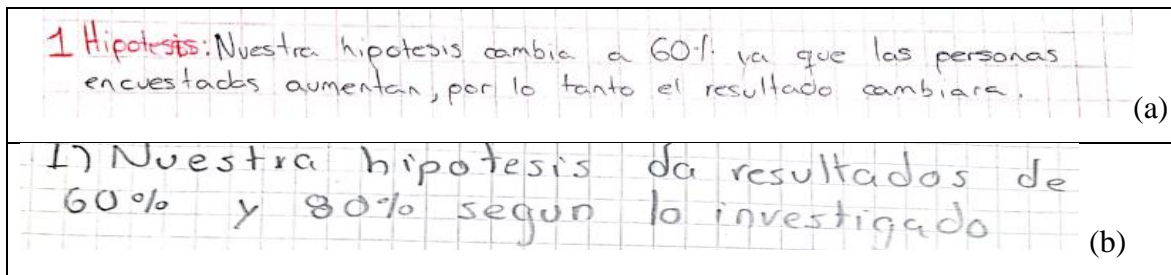 1 Hipotesis: Nuestra hipotesis cambia a 60% ya que las personas
encuestadas aumentan, por lo tanto el resultado cambiara.
(a)
1) Nuestra hipotesis da resultados de
60% y 80% segun lo investigado
(b)